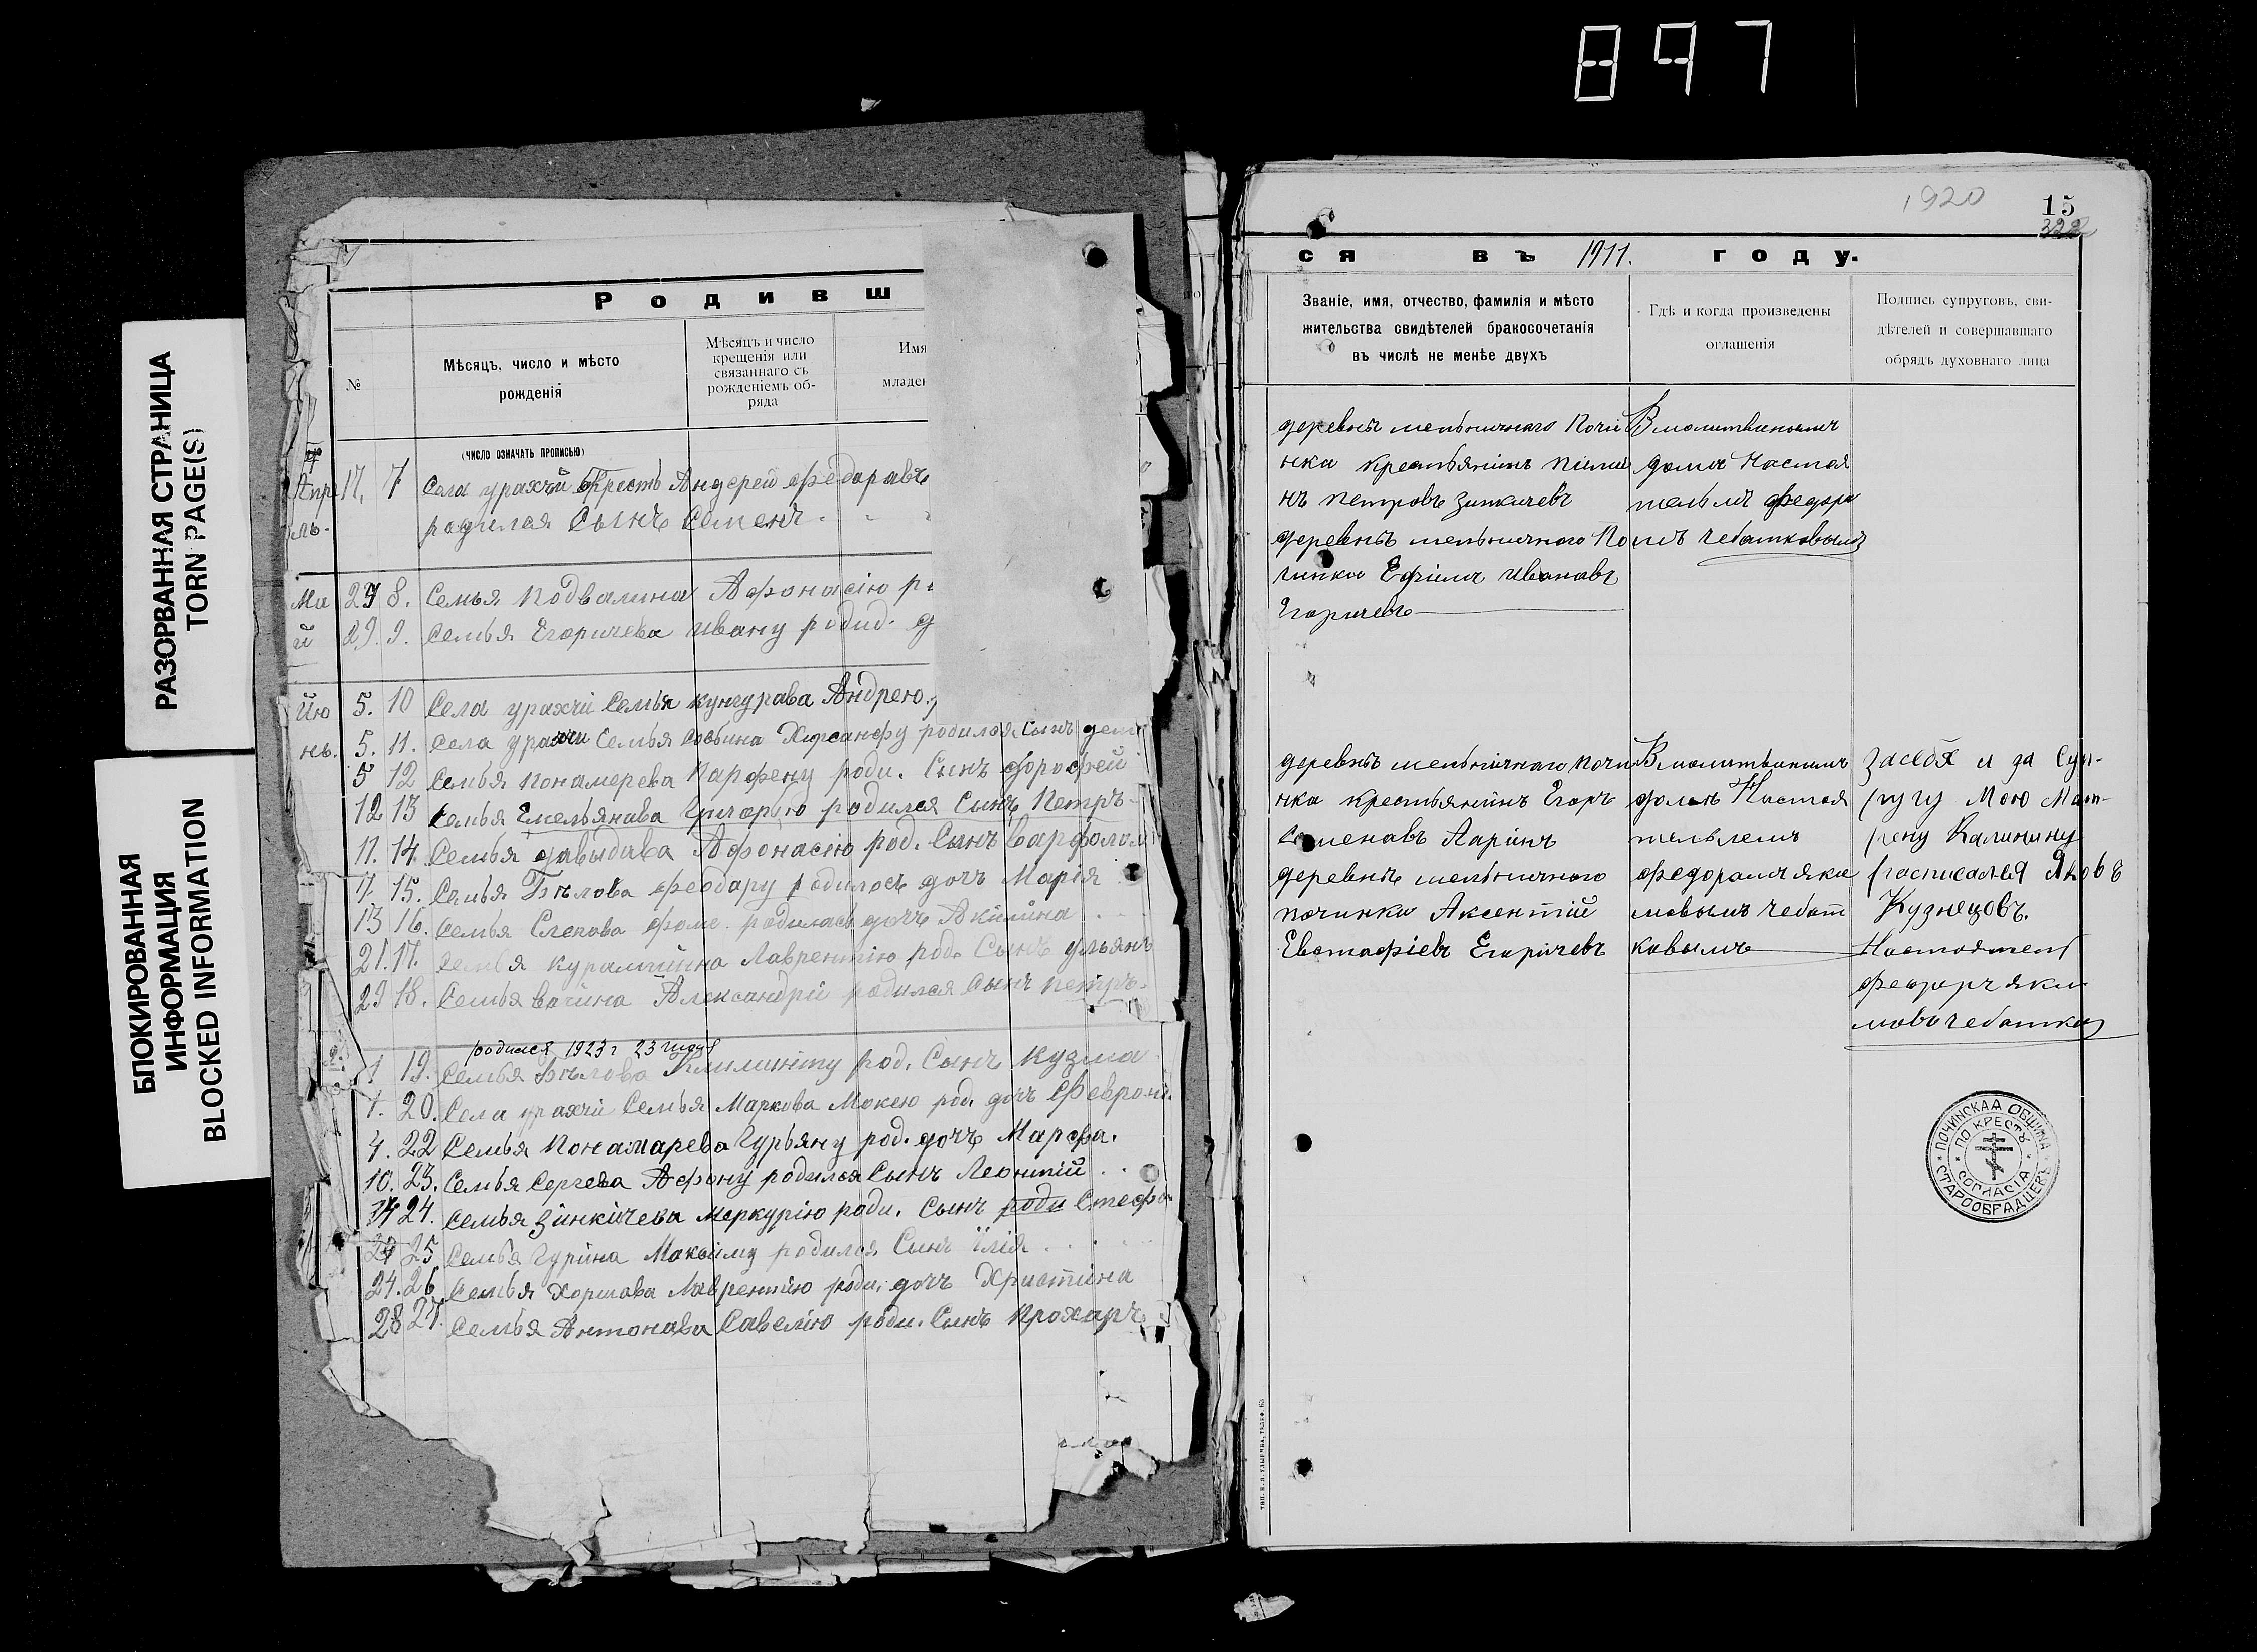 897
РАЗОРВАННАЯ СТРАНИЦА
TORN PAGE(S)
БЛОКИРОВАННАЯ
ИНФОРМАЦИЯ
BLOCKED INFORMATION
Р о д и в ш
№
Мѣсяцъ, число и мѣсто
рожденія
Мѣсяцъ и число
крещенія или
связаннаго съ
рожденіемъ об-
ряда
Имя
младен
(число означать прописью)
Апре 17, 7 Села урахчй Крестъ Андерей Федаравъ
ль. радился Сынъ Семенъ
Ма 8. Семья Подвалина Афонасію
й 29. 9. Семья Егоричева Ивану родид.
Йю 5. 10 Села урахчй Семья кунгурава Андрею
нь. 5. 11. Села урахчи Семья Хрисанфу родился Сынъ
5 12 Семья Понамерева Парфену роди. Сынъ дорофей
12 13 Семья Емельянава Григорью родился Сынъ Петръ
11. 14. Семья давыдава Афонасію род. Сынъ Варфолом
7. 15. Семья Бѣлова Феодару родилось дочъ Марія
13 16. Семья Слепова фоме. родилась дочъ Акилина
21. 17. Семья курамшина Лаврентію род. Сынъ ульянъ
29 18. Семья вагина Александрй родился Сынъ Петръ.
родился 1923 г 23 июня
1. 19. Семья Бѣлова род. Сынъ Кузма
1. 20. Села урахчй Семья Маркова Мокею род. дочъ Феврони.
4. 22 Семья Понамарева Гурьяну род. дочъ Марфа.
10. 23. Семья Сергева Афону родился Сынъ Леонтій
24. Семья Зинкичева Меркурію роди. Сынъ роди Стефа
25 Семья Гурйна Максиму родился Сынъ Ілія
24. 26 Семья Хоршава Лаврентію роди. дочъ Христина
28 27. Семья Антонава Савелію роди. Сынъ Прохаръ
1920
15
322
с я в ъ 1911. г о д у.
Званіе, имя, отчество, фамилія и мѣсто
жительства свидѣтелей бракосочетанія
въ числѣ не менѣе двухъ
Гдѣ и когда произведены
оглашенія
Подпись супруговъ, сви-
дѣтелей и совершавшаго
обрядъ духовнаго лица
деревнѣ мельничнаго Почи
нка крестьянинъ
нъ Петровъ Зинкичевъ
деревнѣ мельничнаго По
чинка Ефимъ Ивановъ
Егоричевъ
В молитвеномъ
доми Настоя
тельмъ Федора
мъ Чебатковымъ
деревнѣ мельничнаго почи
нка крестьянинъ Егоръ
Семенавъ Ларинъ
деревнѣ мельничнаго
починка Аксентій
Евстафіевъ Егоричевъ
В молитвинимъ
доме Настоя
тельлемъ
Федорамъ яки
мовымъ Чебат
ковымъ
За себя и за Суп-
ругу Мою Мат-
рену Калинину
росписался Яковъ
Кузнецовъ.
Настоятель
Федоръ яки
мовъ Чебатков
ПОЧИНСКАЯ ОБЩИНА
СТАРООБРЯДЦЕВЪ
ПО КРЕСТУ
СОГЛАСІЯ